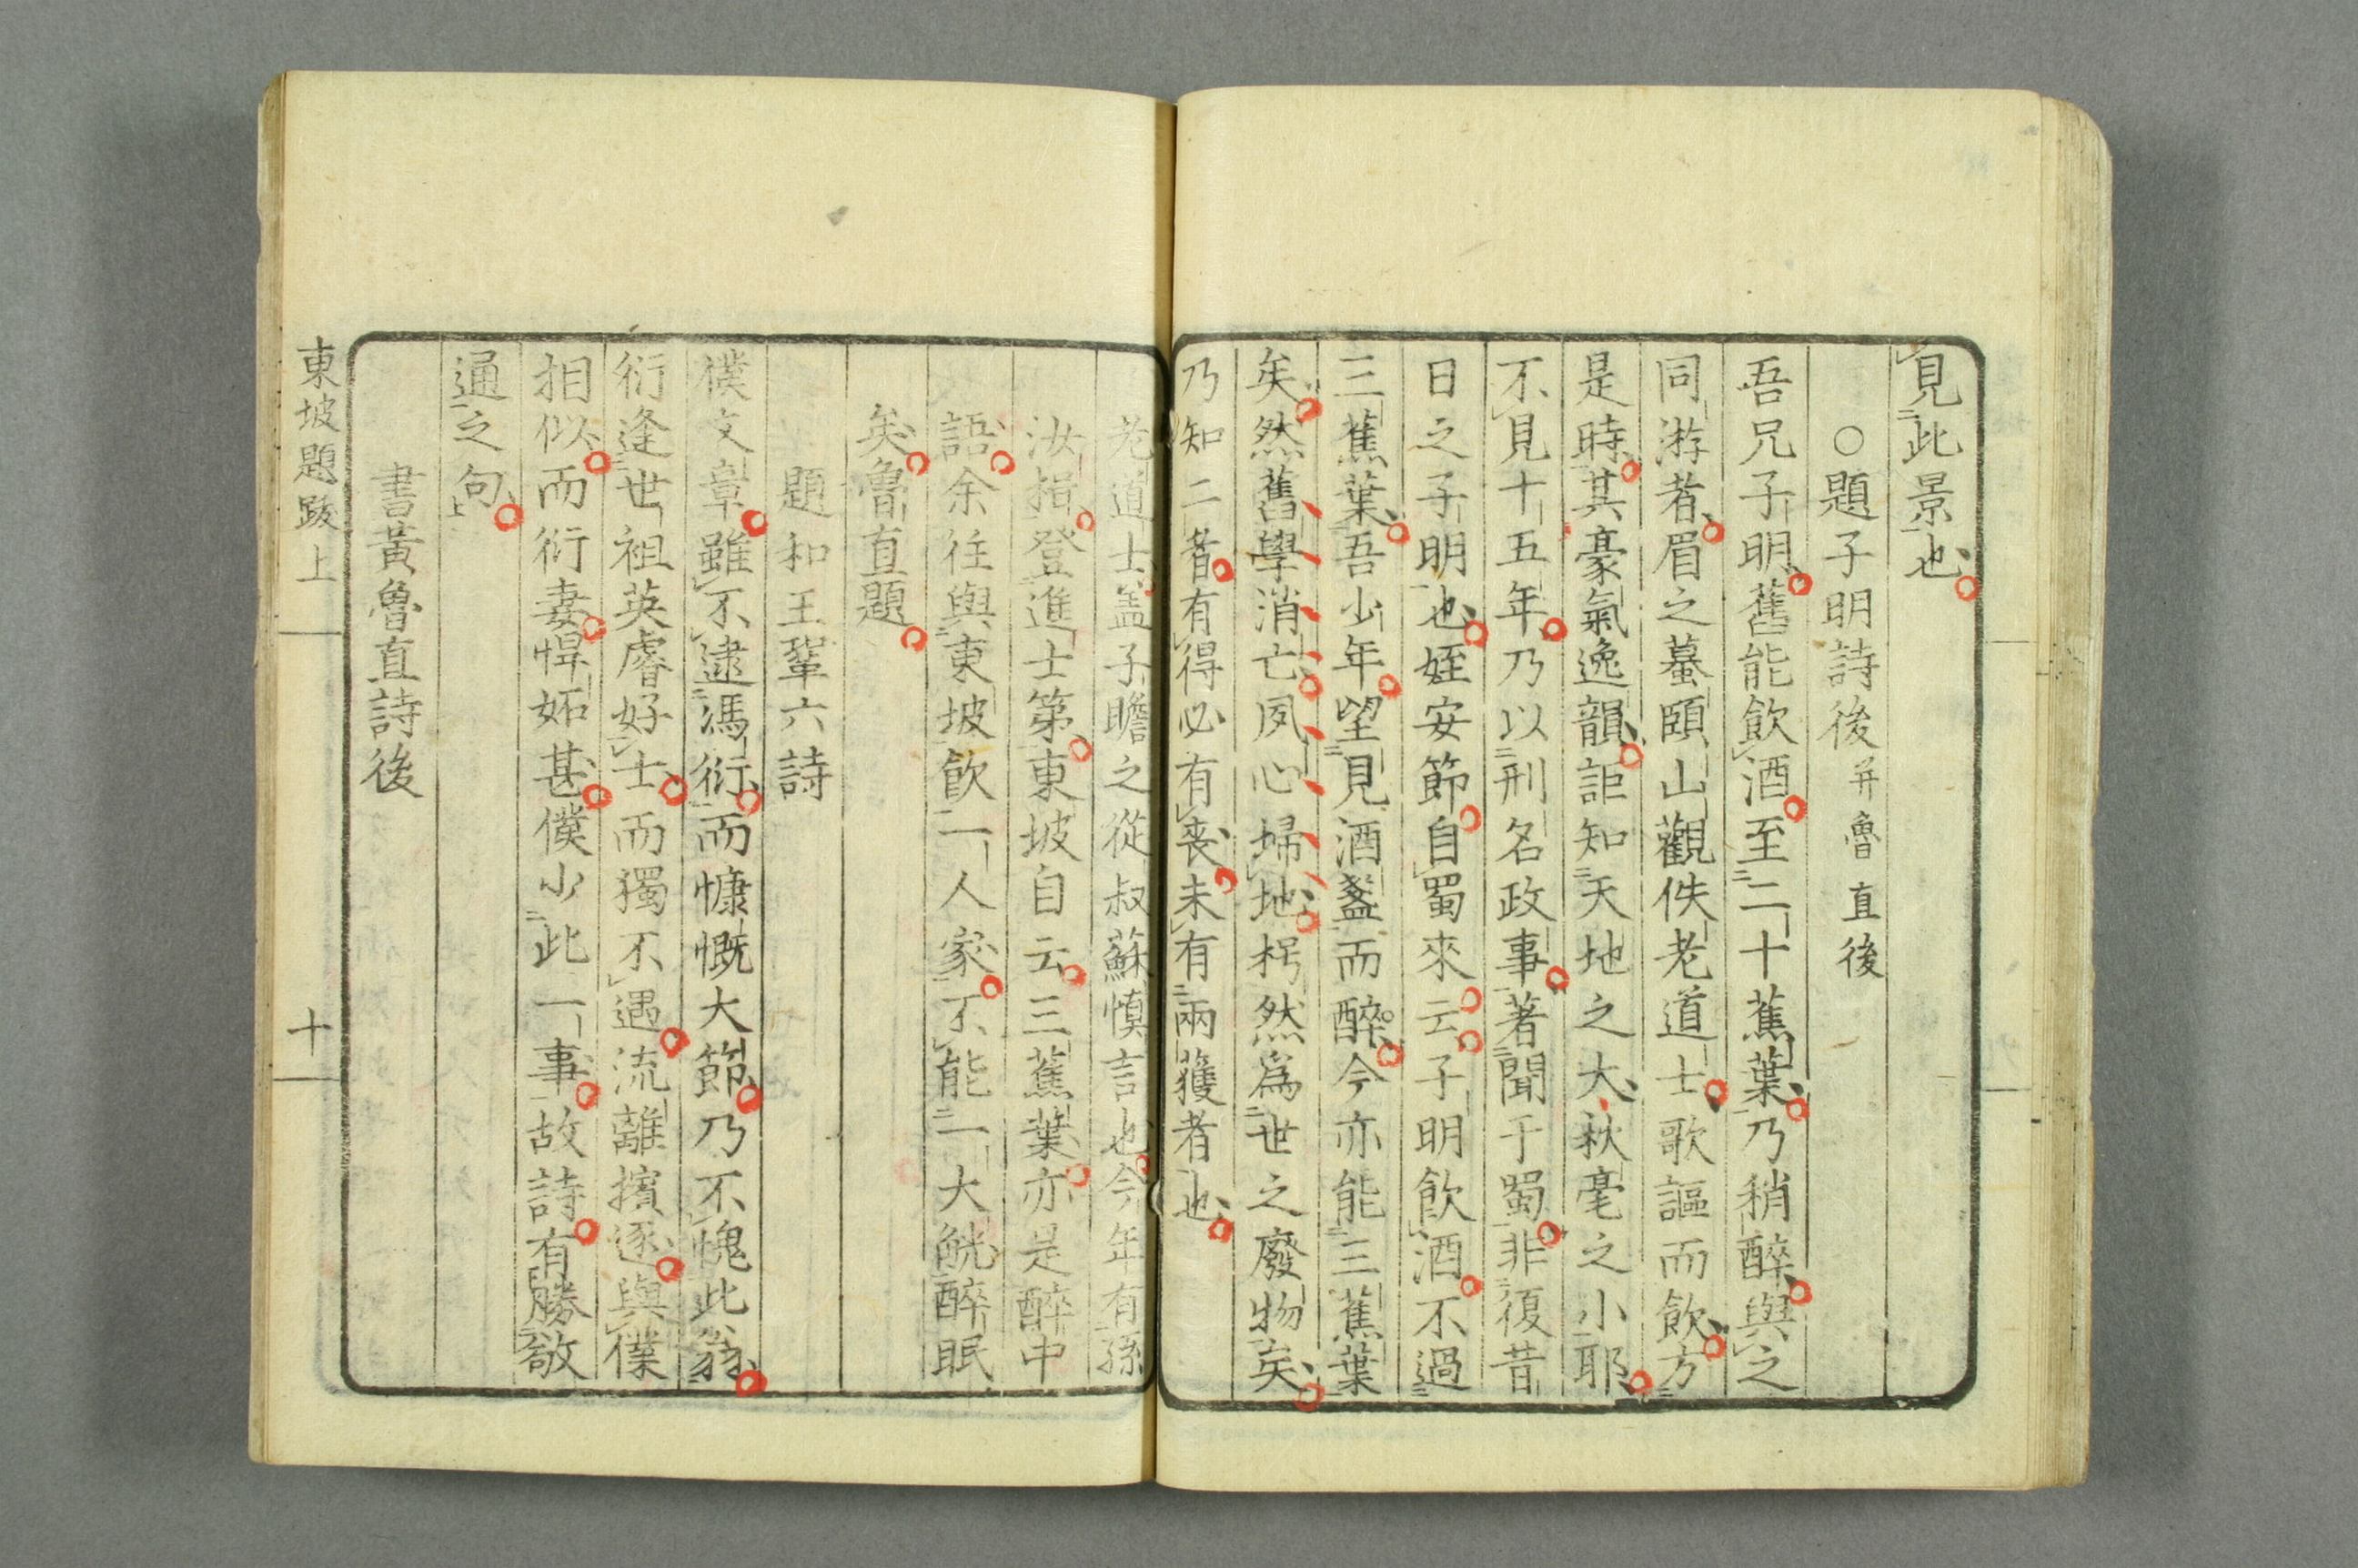 見此景也
○題子明詩後 并魯直後
吾兄子明舊能飲酒至二十蕉葉乃稍醉與之
同游者眉之蟇頤山觀佚老道士歌謳而飲方
是時其豪氣逸韻詎知天地之大秋毫之小耶
不見十五年乃以刑名政事著聞于蜀非復昔
日之子明也姪安節自蜀來云子明飲酒不過
三蕉葉吾少年望見酒盞而醉今亦能三蕉葉
矣然舊學消亡夙心掃地枵然爲世之廢物矣
乃知二者有得必有喪未有兩獲者也
老道士盖子瞻之從叔蘇慎言也今年有孫
汝揖登進士第東坡自云三蕉葉亦是醉中
語余往與東坡飲一人家不能一大觥醉眠
矣魯直題
題和王鞏六詩
僕文章雖不逮馮衍而慷慨大節乃不愧此翁
衍逢世祖英睿好士而獨不遇流離擯逐與僕
相似而衍妻悍妬甚僕少此一事故詩有勝敬
通之句
書黃魯直詩後
東坡題跋上
十